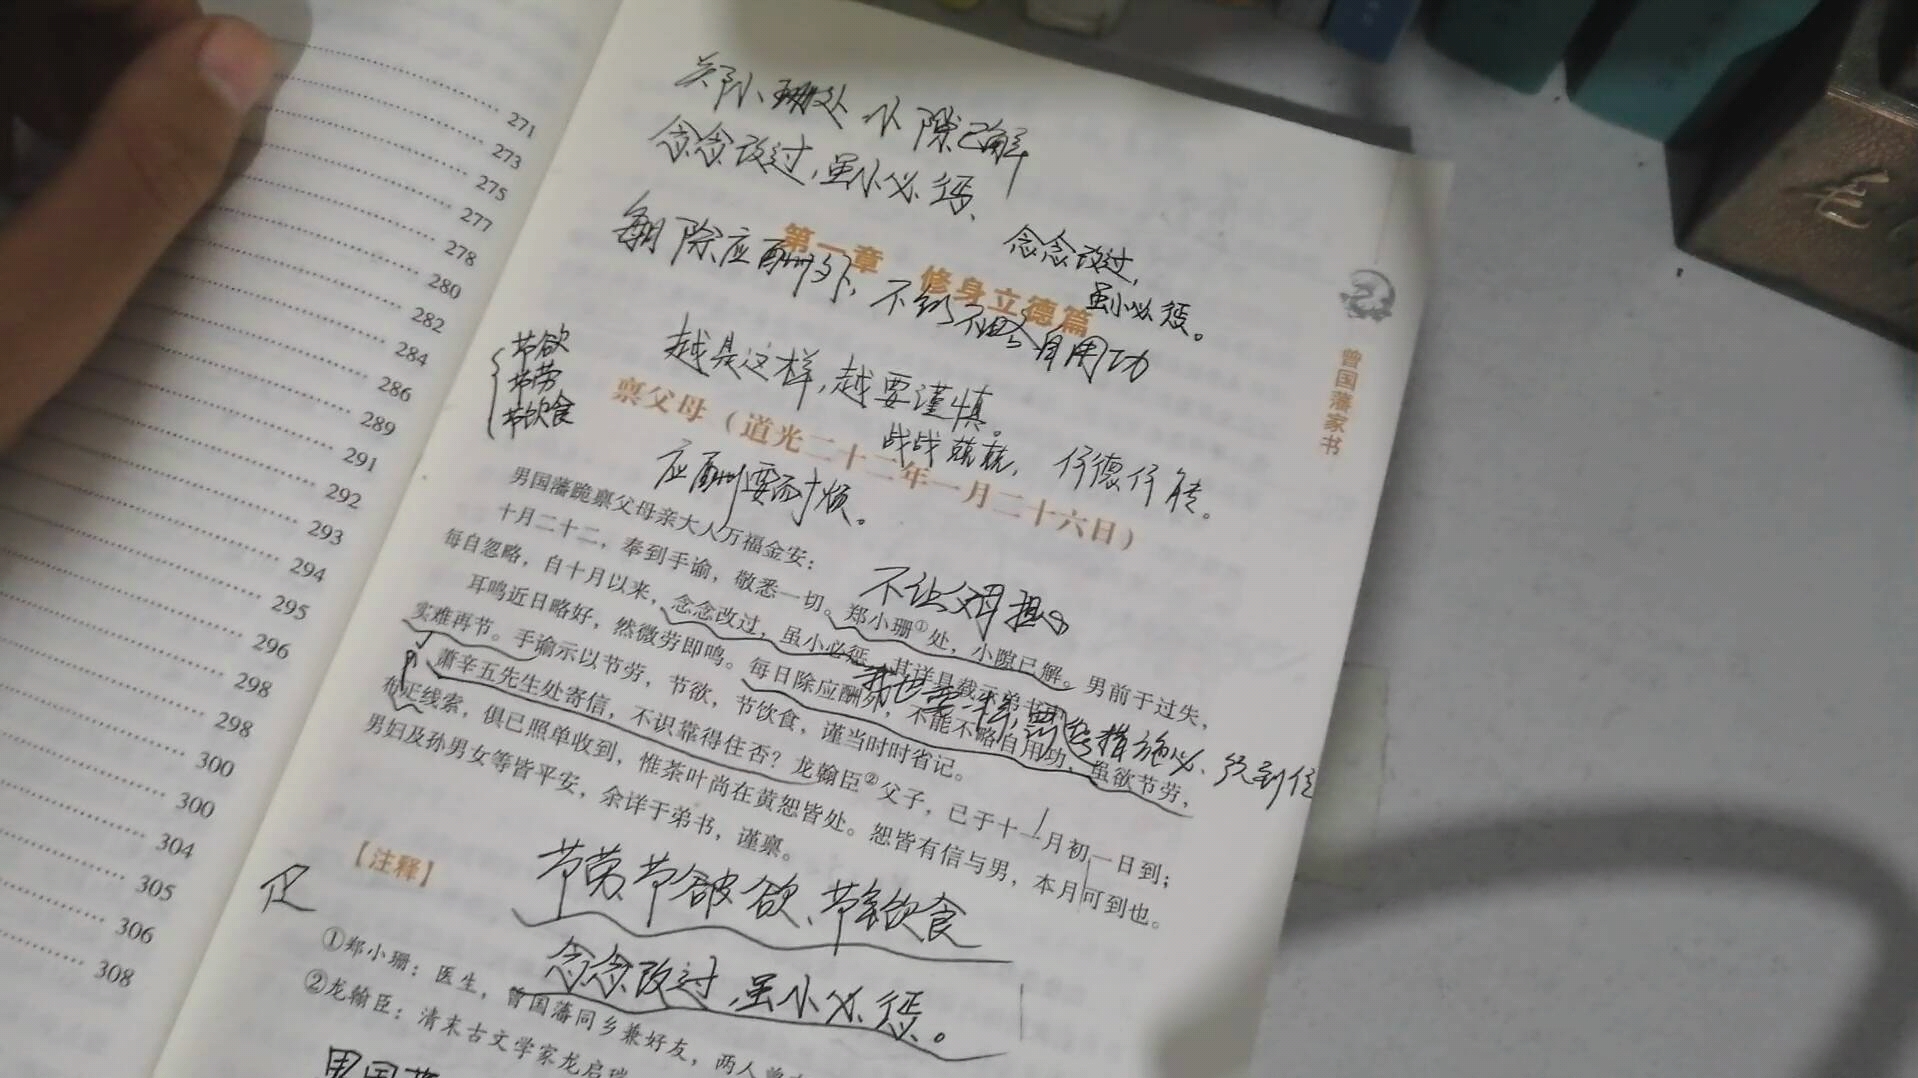 271
273
275
277
278
280
282
284
286
289
291
292
293
294
295
296
298
298
300
300
304
305
306
308
关郑小珊处 小隙已解
念念改过，虽小必惩、
第一章 修身立德篇
每日除应酬外，不能不略自用功
念念改过，
虽小必惩。
曾国藩家书
节欲
节劳
节饮食
越是这样，越要谨慎。
禀父母（道光二十二年一月二十六日）
战战兢兢，
应酬要耐烦。
男国藩跪禀父母亲大人万福金安：
十月二十二，奉到手谕，敬悉一切。郑小珊①处，小隙已解。男前于过失，
每自忽略，自十月以来，念念改过，虽小必惩，其详具载示弟书中。
不让父母担心
耳鸣近日略好，然微劳即鸣。每日除应酬外，不能不略自用功，虽欲节劳，
实难再节。手谕示以节劳，节欲，节饮食，谨当时时省记。
措施必须到位
萧辛五先生处寄信，不识靠得住否？龙翰臣②父子，已于十一月初一日到；
布疋线索，俱已照单收到，惟茶叶尚在黄恕皆处。恕皆有信与男，本月可到也。
男妇及孙男女等皆平安，余详于弟书，谨禀。
【注释】
节劳、节欲、节饮食
念念改过，虽小必惩。
①郑小珊：医生，曾国藩同乡兼好友，两人曾
②龙翰臣：清末古文学家龙启瑞
男国藩